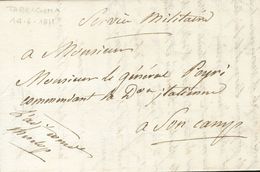 TARRAGONA
14-6-1811
Service Militaire
a Monsieur
Monsieur le général Peyri
commandant la Don italienne
a Son camp